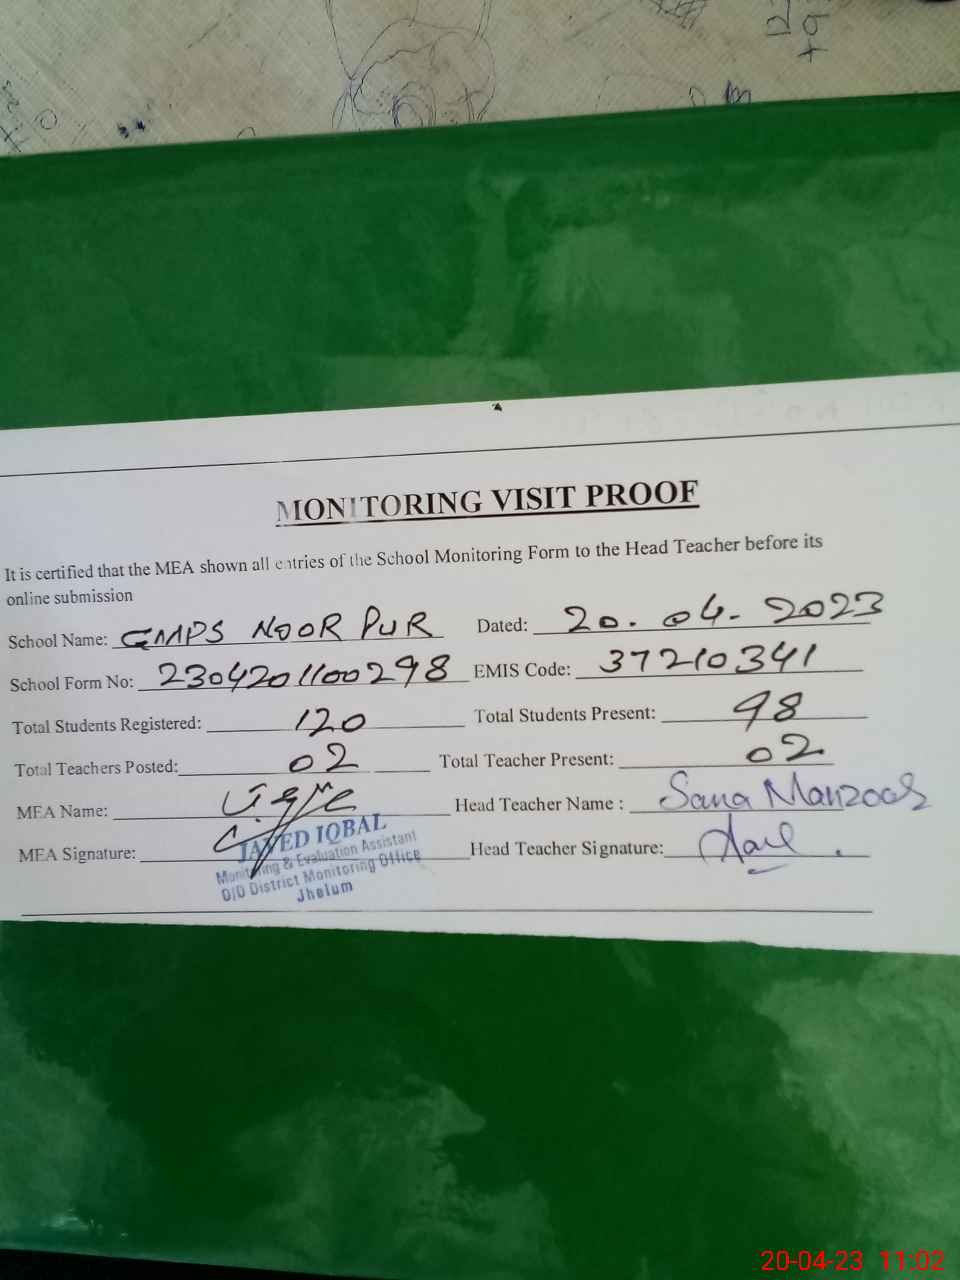 MONITORING VISIT PROOF
It is certified that the MEA shown all entries of the School Monitoring Form to the Head Teacher before its
online submission
School Name: GMPS NOOR PUR Dated: 20.04.2023
School Form No: 2304201100298 EMIS Code: 37210341
Total Students Registered: 120 Total Students Present: 98
Total Teachers Posted: 02 Total Teacher Present: 02
MEA Name: Head Teacher Name : Sana Manzoor
MEA Signature: Head Teacher Signature:
JAVED IQBAL
Monitoring & Evaluation Assistant
O/O District Monitoring Office
Jhelum
20-04-23 11:02